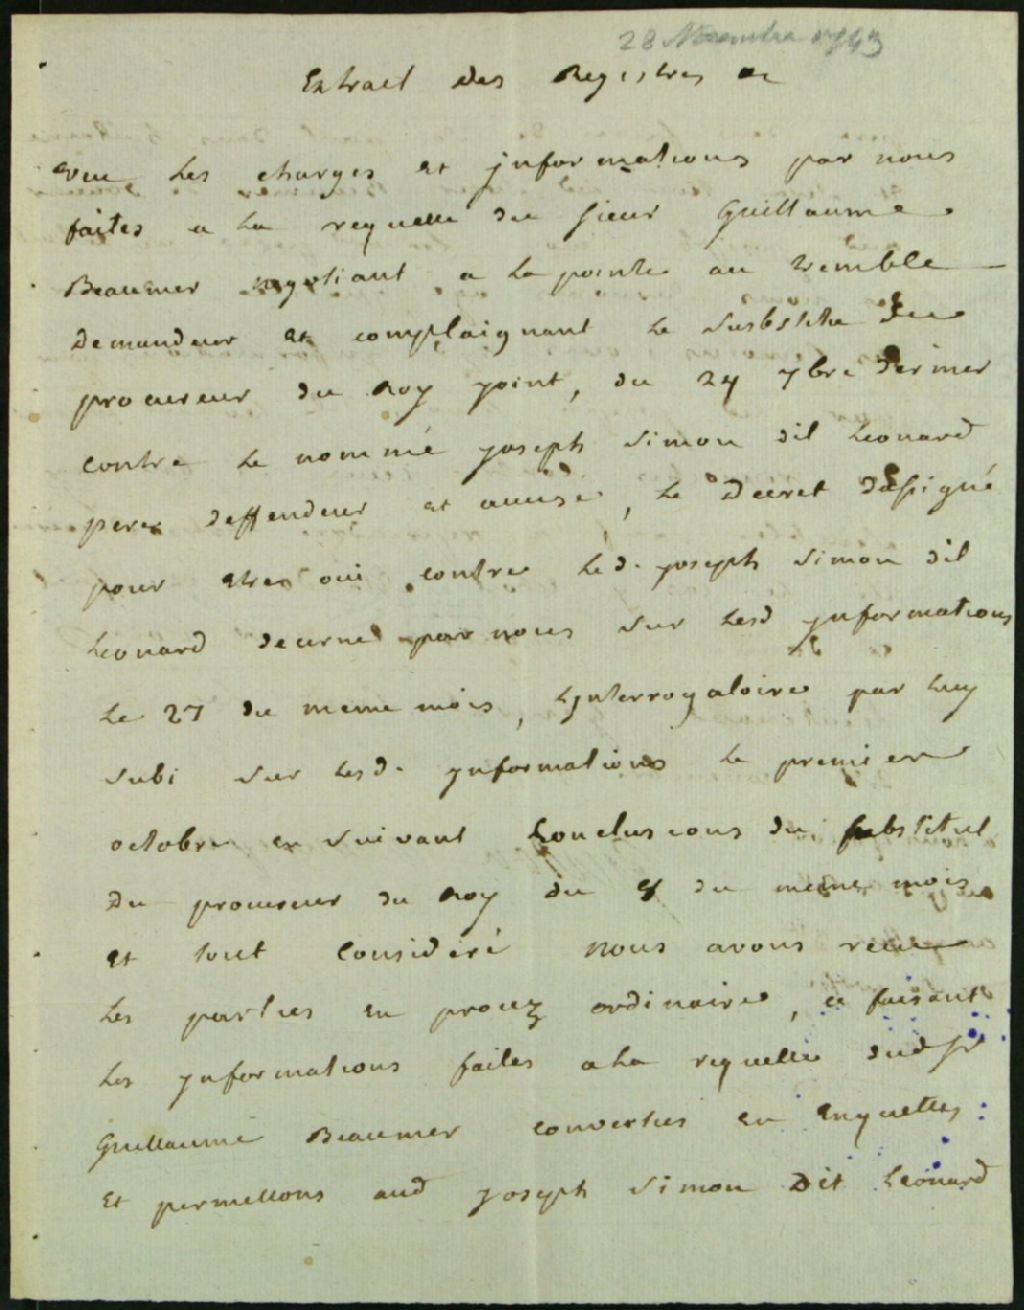 28 Novembre 1743
Extrait des Registres &c
Veu Les charges et jnformations par nous
faites a La requette du sieur Guillaume
Beaumer negotiant a La pointe au tremble
Demandeur et complaignant Le Substitu du
procureur du Roy joint, du 24 7bre dernier
contre Le nommé joseph Simon dit Leonard
pere deffendeur et accusé, Le Decret dassigné
pour etre oui contre Led. joseph Simon dit
Leonard decerné par nous sur Lesd jnformations
Le 27 du meme mois, Lynterrogatoire par Luy
subi sur Lesd. ynformations Le premier
octobre en suivant Conclusions du substitut
Du procureur du Roy du 8 du meme mois
et tout Consideré nous avons receu
Les parties en procez ordinaire, ce faisant
Les ynformations faites a La requette dud Sr
Guillaume Beaumer converties en Enquettes
Et permettons aud joseph Simon Dit Leonard